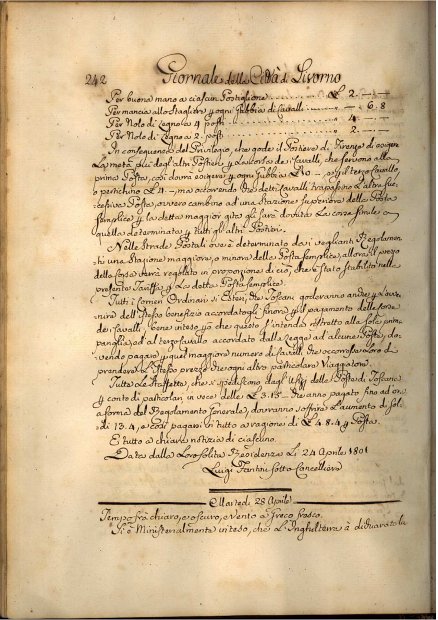 242 Giornale della Città di Livorno
Per buona mano a ciascun Postiglione ₤ 2 . — . —
Per mancia allo Stalliere p ogni Gubbia di Cavalli — . 6 . 8
Per Nolo di Legno a 4 posti 4 . — . —
Per Nolo di Legno a 2 posti 2 . — . —
In conseguenza del Privilegio, che gode il Postiere di Firenze di esigere
la metà più degl'altri Postieri p la corsa de i Cavalli, che servono alla
prima Posta, così dovrà esigere p ogni Gubbia ₤ 10 — , e p il terzo Cavallo,
o pertichino ₤ 4 — , ma occorrendo che detti Cavalli trapassino l'altra suc=
cessiva Posta, ovvero cambino ad una Stazione Superiore della Posta
semplice p la detta maggior gita gli sarà dovuta la corsa simile a
quella determinata p tutti gli altri Postieri.
Nelle Strade Postali ove è determinato da i veglianti Regolamen
ti una Stazione maggiore, o minore della Posta semplice, allora il prezzo
della Corsa verrà regolato in proporzione di ciò, che è stato stabilito nella
presente Tariffa p la detta Posta semplice.
Tutti i Corrieri Ordinari sì Esteri, che Toscani goderanno anche p l'avve=
nire dell'istesso benefizio accordatogli finora p il pagamento della corsa
dei Cavalli, bene inteso p che questo s'intenda ristretto alla sola prima
pariglia, ed al terzo Cavallo accordato dalla Legge ad alcune Poste, do=
vendo pagare p quel maggior numero di Cavalli, che occorresse loro di
prendere l'istesso prezzo d'ogni altro particolare Viaggiatore.
Tutte le Staffette, che si spediscono dagl'Ufizi delle Poste di Toscana
p conto di particolari in vece delle ₤ 3.15 — che hanno pagato fino ad ora
a forma del Regolamento Generale, dovranno soffrire l'aumento di sol=
di 13.4, e così pagare in tutto a ragione di ₤ 4.8.4 p Posta.
E tutto a chiara notizia di ciascuno.
Data dalla loro solita Residenza li 24 Aprile 1801
Luigi Fantini Sotto Cancelliere
Martedì 28 Aprile
Tempo frà chiaro, e oscuro, e vento a Greco fresco.
Si è Ministerialmente inteso, che l'Inghilterra à dichiarato la